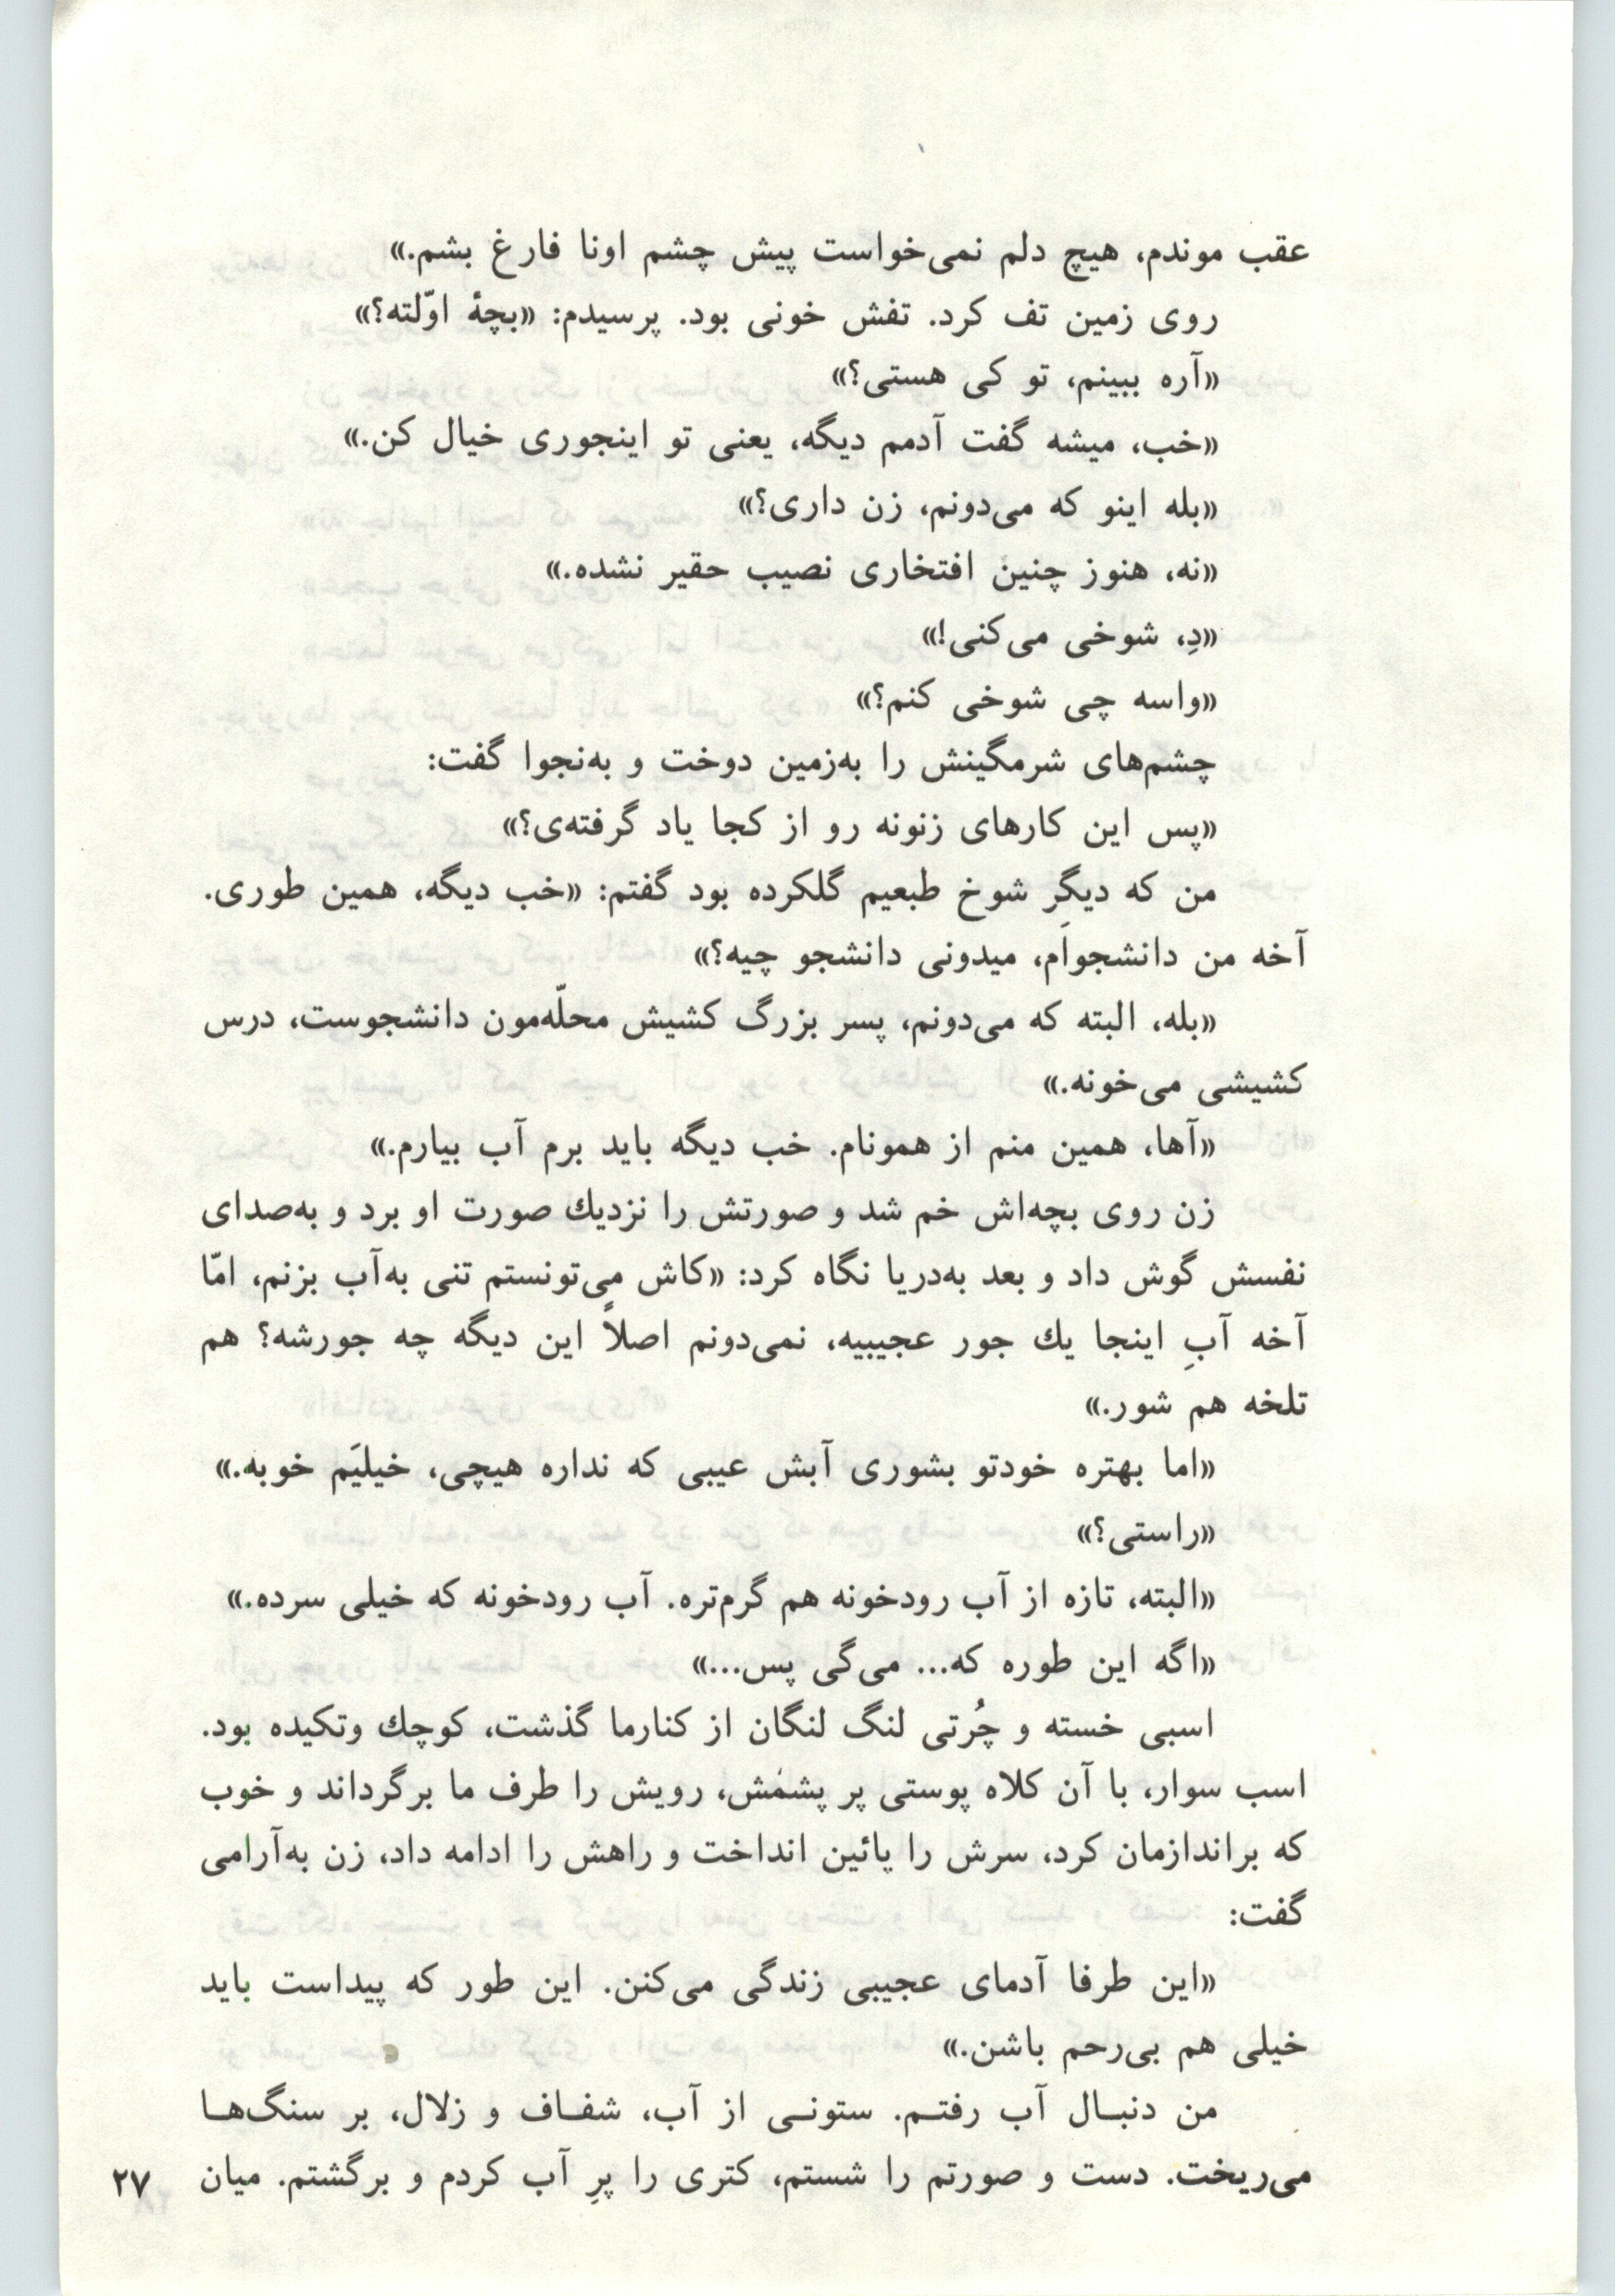 عقب موندم، هیچ دلم نمی‌خواست پیش چشم اونا فارغ بشم.»
روی زمین تف کرد. تفش خونی بود. پرسیدم: «بچهٔ اوّلته؟»
«آره ببینم، تو کی هستی؟»
«خب، میشه گفت آدمم دیگه، یعنی تو اینجوری خیال کن.»
«بله اینو که می‌دونم، زن داری؟»
«نه، هنوز چنین افتخاری نصیب حقیر نشده.»
«دِ، شوخی می‌کنی!»
«واسه چی شوخی کنم؟»
چشم‌های شرمگینش را به‌زمین دوخت و به‌نجوا گفت:
«پس این کارهای زنونه رو از کجا یاد گرفته‌ی؟»
من که دیگر شوخ طبعیم گلکرده بود گفتم: «خب دیگه، همین طوری.
آخه من دانشجواَم، میدونی دانشجو چیه؟»
«بله، البته که می‌دونم، پسر بزرگ کشیش محلّه‌مون دانشجوست، درس
کشیشی می‌خونه.»
«آها، همین منم از همونام. خب دیگه باید برم آب بیارم.»
زن روی بچه‌اش خم شد و صورتش را نزدیك صورت او برد و به‌صدای
نفسش گوش داد و بعد به‌دریا نگاه کرد: «کاش می‌تونستم تنی به‌آب بزنم، امّا
آخه آبِ اینجا یك جور عجیبیه، نمی‌دونم اصلاً این دیگه چه جورشه؟ هم
تلخه هم شور.»
«اما بهتره خودتو بشوری آبش عیبی که نداره هیچی، خیلیَم خوبه.»
«راستی؟»
«البته، تازه از آب رودخونه هم گرم‌تره. آب رودخونه که خیلی سرده.»
«اگه این طوره که... می‌گی پس...»
اسبی خسته و چُرتی لنگ لنگان از کنارما گذشت، کوچك وتکیده بود.
اسب سوار، با آن کلاه پوستی پر پشمش، رویش را طرف ما برگرداند و خوب
که براندازمان کرد، سرش را پائین انداخت و راهش را ادامه داد، زن به‌آرامی
گفت:
«این طرفا آدمای عجیبی زندگی می‌کنن. این طور که پیداست باید
خیلی هم بی‌رحم باشن.»
من دنبـال آب رفتـم. ستونـی از آب، شفـاف و زلال، بر سنگ‌هـا
می‌ریخت. دست و صورتم را شستم، کتری را پرِ آب کردم و برگشتم. میان
۲۷